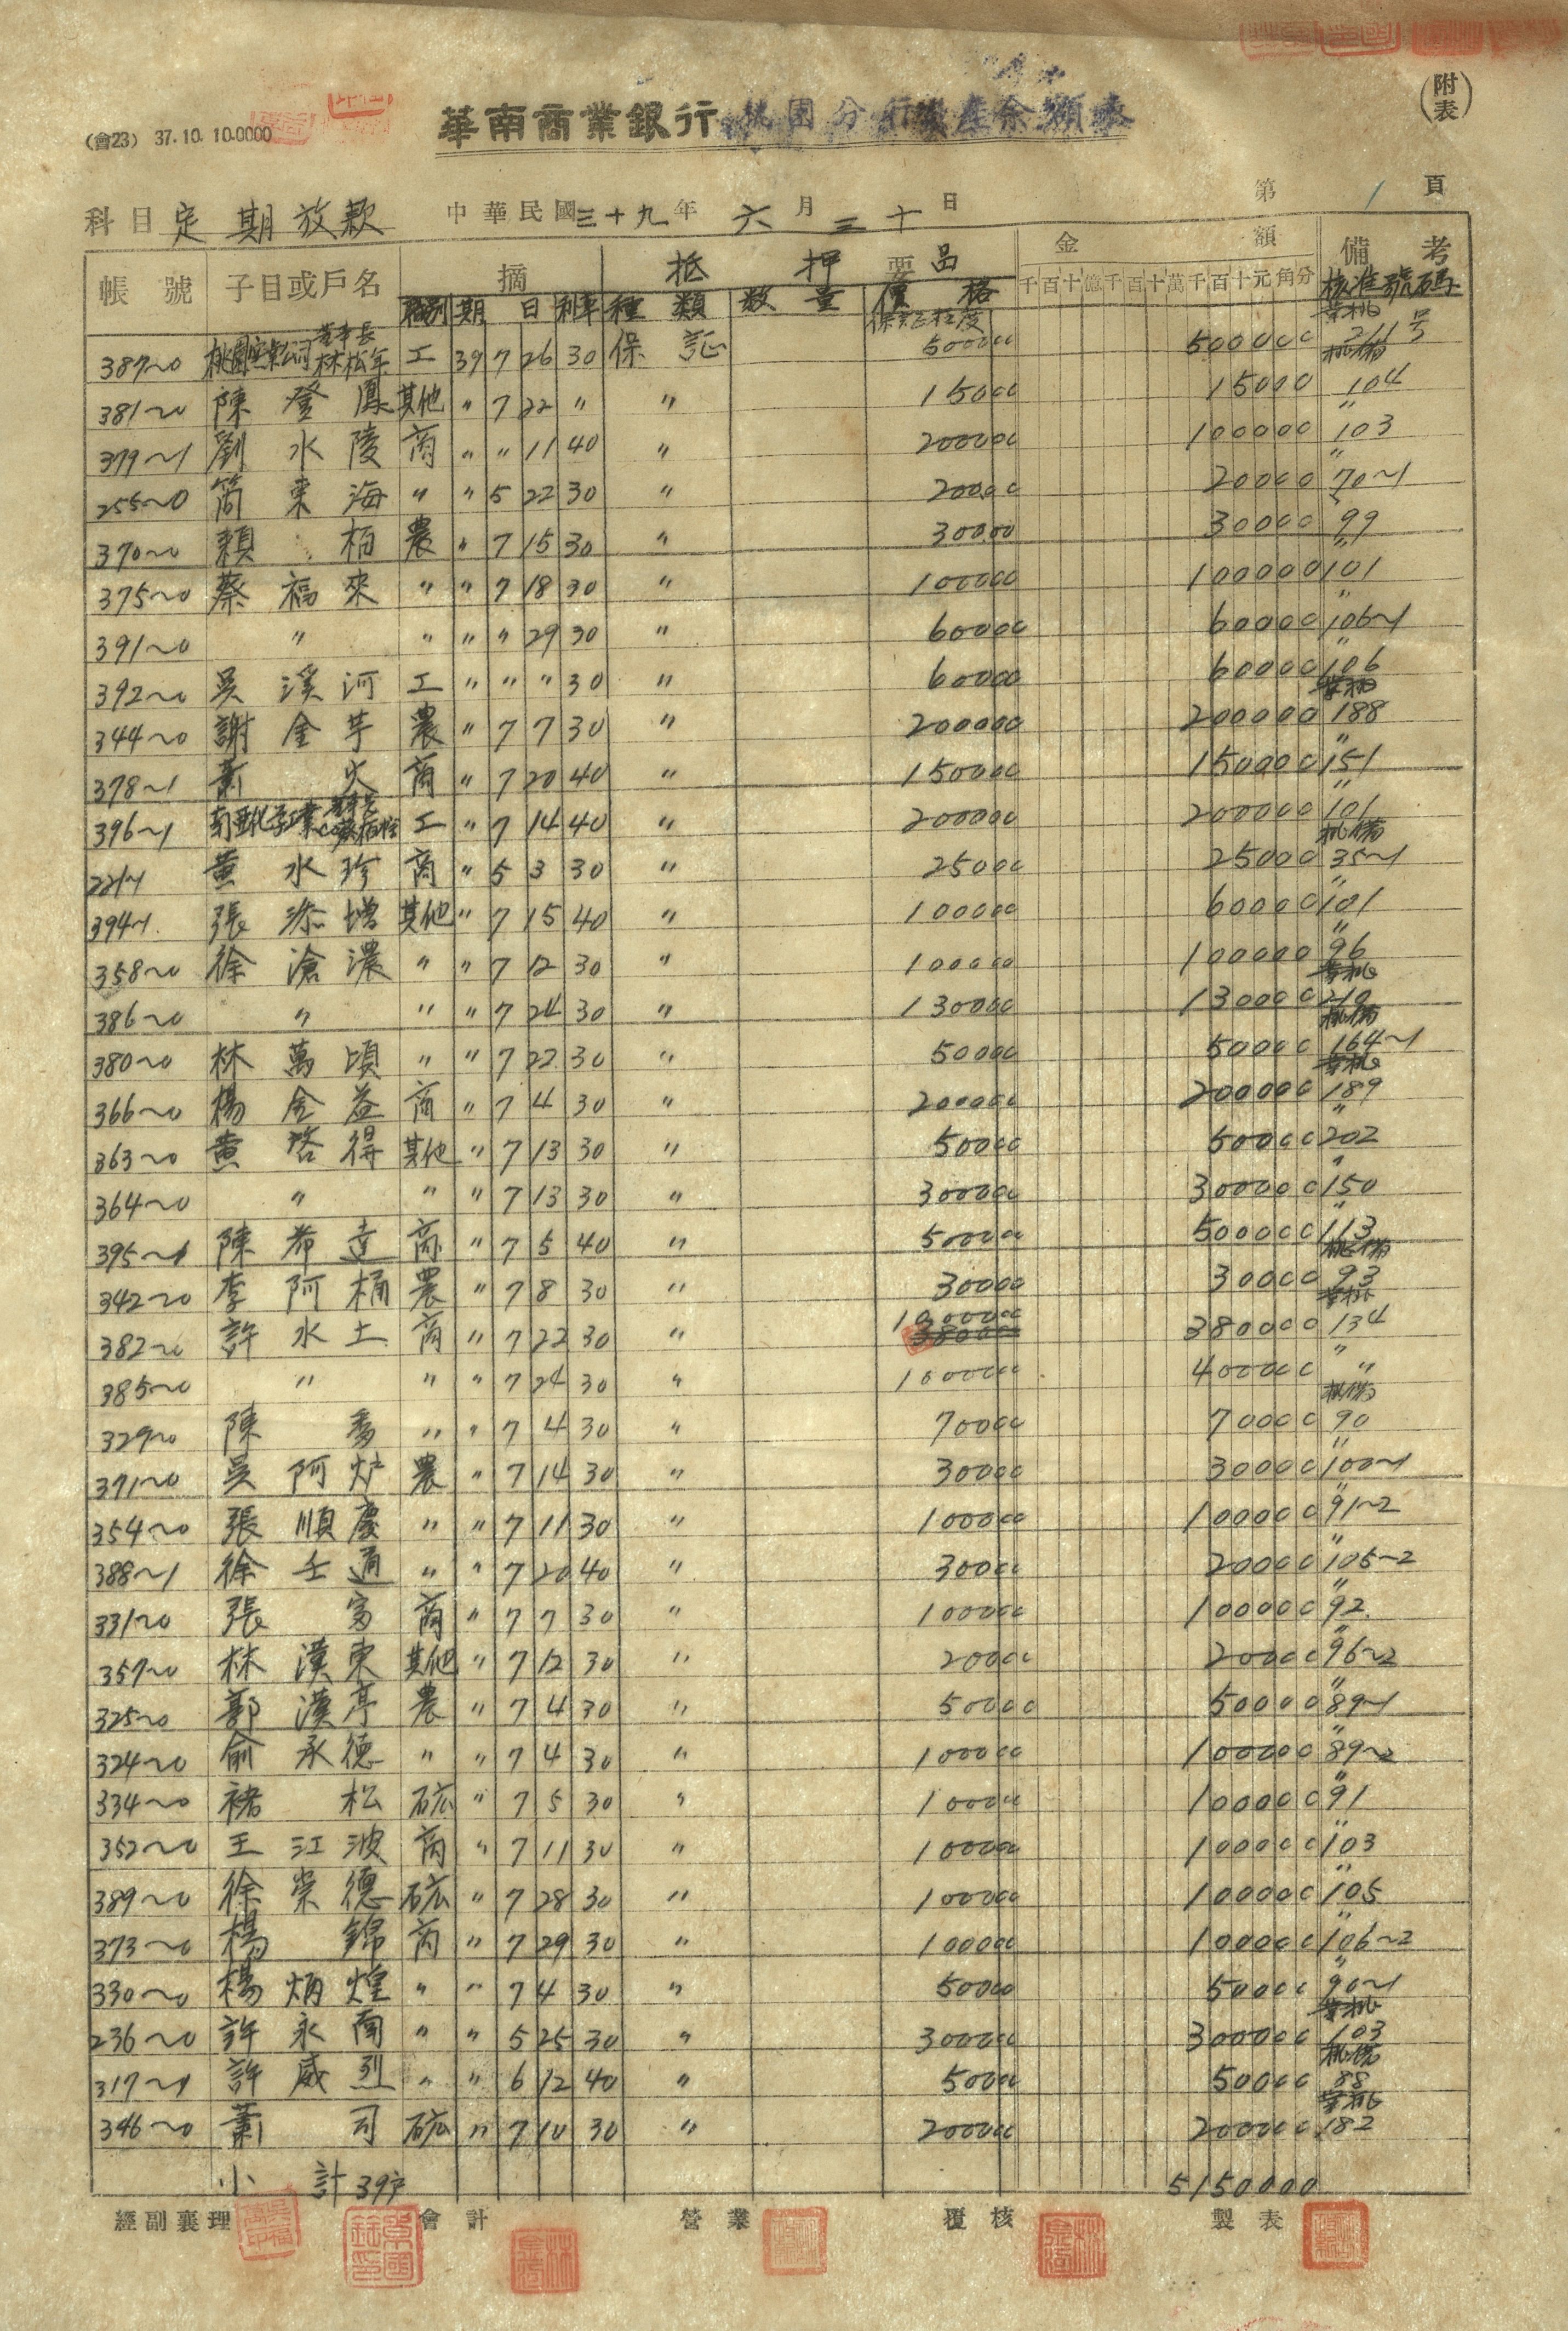 (附表)
(會23) 37.10.10.0000
華南商業銀行桃園分行資產余額表
科目 定期放款 中華民國三十九年六月三十日 第 1 頁
帳號 子目或戶名 摘要 抵押品 金額 備考
種別 期日 利率 種類 數量 價格 千百十億千百十萬千百十元角分 核准號碼
保証程度
387~0 桃園 公司 董事長 林松年 工 39 7 26 30 保証 500000 500000 211号
桃備
381~0 陳登鳳 其他 〃 7 22 〃 〃 15000 15000 104
379~1 劉水陵 商 〃 〃 11 40 〃 200000 100000 〃 103
255~0 簡東海 〃 〃 5 22 30 〃 20000 20000 〃 70~1
370~0 賴柏 農 〃 7 15 30 〃 30000 30000 〃 99
375~0 蔡福來 〃 〃 7 18 30 〃 100000 100000 〃 101
391~0 〃 〃 〃 〃 29 30 〃 60000 60000 〃 106~1
392~0 吳溪河 工 〃 〃 〃 30 〃 60000 60000 〃 106
344~0 謝金芋 農 〃 7 7 30 〃 200000 200000 188
378~1 蕭火 商 〃 7 20 40 〃 150000 150000 〃 151
396~1 南亞化學工業 董事長 工 〃 7 14 40 〃 200000 200000 〃 101
221~1 黃水珍 商 〃 5 3 30 〃 25000 25000 桃備 35~1
394~1 張添增 其他 〃 7 15 40 〃 100000 60000 〃 101
358~0 徐滄濃 〃 〃 7 12 30 〃 100000 100000 〃 96
386~0 〃 〃 〃 7 24 30 〃 130000 130000 210
380~0 林萬頃 〃 〃 7 22 30 〃 50000 50000 桃備 164~1
366~0 楊金益 商 〃 7 4 30 〃 200000 200000 189
363~0 黃啓得 其他 〃 7 13 30 〃 50000 50000 〃 202
364~0 〃 〃 〃 7 13 30 〃 300000 300000 〃 150
395~1 陳希達 商 〃 7 5 40 〃 500000 500000 〃 113
342~0 李阿桶 農 〃 7 8 30 〃 30000 30000 桃備 93
382~0 許水土 商 〃 7 22 30 〃 1000000 380000 380000 134
385~0 〃 〃 〃 7 24 30 〃 1000000 400000 〃 〃
329~0 陳 〃 〃 7 4 30 〃 70000 70000 桃備 90
371~0 吳阿炉 農 〃 7 14 30 〃 30000 30000 〃 100~1
354~0 張順慶 〃 〃 7 11 30 〃 100000 100000 91~2
388~1 徐壬通 〃 〃 7 20 40 〃 30000 20000 〃 105~2
331~0 張富 商 〃 7 7 30 〃 100000 100000 〃 92
357~0 林漢東 其他 〃 7 12 30 〃 20000 20000 〃 96~2
325~0 郭漢亭 農 〃 7 4 30 〃 50000 50000 〃 89~1
324~0 俞承德 〃 〃 7 4 30 〃 100000 100000 〃 89~2
334~0 褚松 砿 〃 7 5 30 〃 100000 100000 〃 91
352~0 王江波 商 〃 7 11 30 〃 100000 100000 〃 103
389~0 徐崇德 砿 〃 7 28 30 〃 100000 100000 〃 105
373~0 楊錦 商 〃 7 29 30 〃 100000 100000 〃 106~2
330~0 楊炳煌 〃 〃 7 4 30 〃 50000 50000 〃 90~1
236~0 許永南 〃 〃 5 25 30 〃 300000 300000 103
317~1 許威烈 〃 〃 6 12 40 〃 50000 50000 88
346~0 蕭司 砿 〃 7 10 30 〃 200000 200000 182
小計 39戶 5150000
經副襄理 會計 營業 覆核 製表